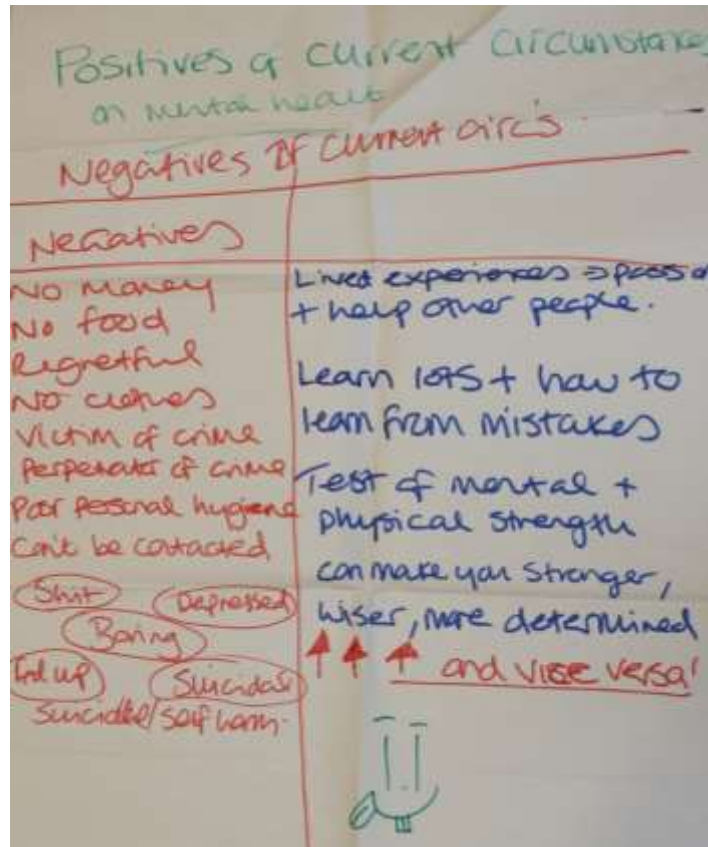 Positives of current circumstances
on mental health
Negatives of current circ's.
Negatives
No money
No food
Regretful
No clothes
Victim of crime
Perpenator of crime
Poor personal hygiene
Can't be contacted
Shit
Depressed
Boring
End up
Suicidal
Suicidal/self harm.
Lived experiences → pass
+ help other people.
Learn lots + how to
learn from mistakes
Test of mental +
physical strength
can make you stronger,
wiser, more determined
and vise versa'